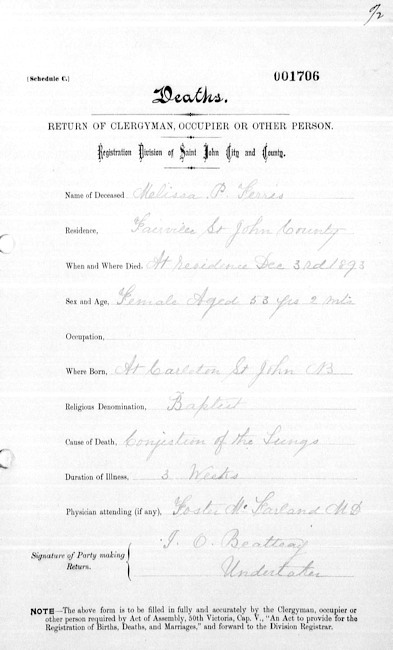 9/2
(Schedule C.)
001706
Deaths.
RETURN OF CLERGYMAN, OCCUPIER OR OTHER PERSON.
Registration Division of Saint John City and County.
Name of Deceased Melissa P. Ferris
Residence, Fairville St John County
When and Where Died, At residence Dec 3rd 1893
Sex and Age, Female Aged 53 yrs 2 mts
Occupation,
Where Born, At Carleton St John NB
Religious Denomination, Baptist
Cause of Death, Conjestion of the Lungs
Duration of Illness, 3 Weeks
Physician attending (if any), Foster McFarland MD
Signature of Party making Return.
J. O. Beatteay
Undertaker
NOTE—The above form is to be filled in fully and accurately by the Clergyman, occupier or
other person required by Act of Assembly, 50th Victoria, Cap. V., "An Act to provide for the
Registration of Births, Deaths, and Marriages," and forward to the Division Registrar.